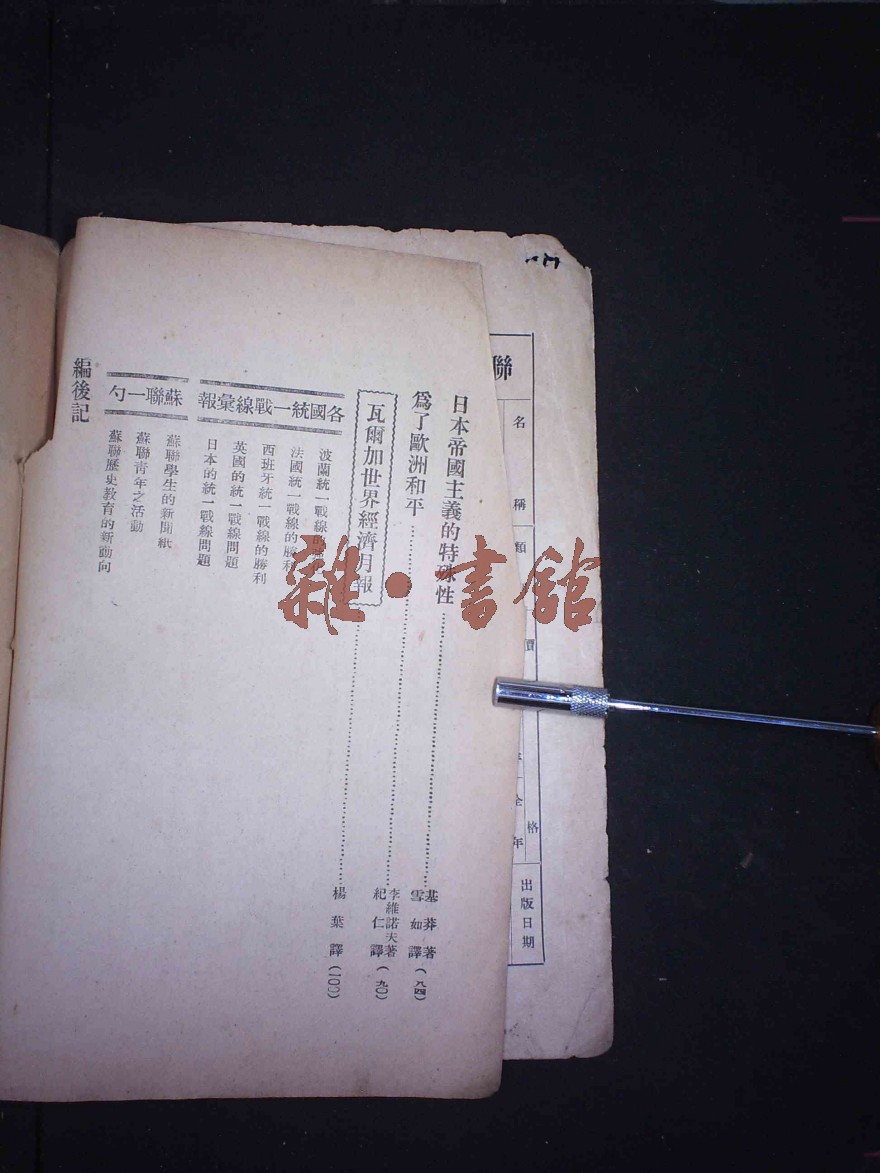 日本帝國主義的特殊性
基莽著
雪如譯(八四)
爲了歐洲和平
李維諾夫著
紀仁譯(九〇)
瓦爾加世界經濟月報
楊葉譯(一〇〇)
各國統一戰線彙報
波蘭統一戰線的
法國統一戰線的勝利
西班牙統一戰線的勝利
英國的統一戰線問題
日本的統一戰線問題
蘇聯一勺
蘇聯學生的新聞紙
蘇聯青年之活動
蘇聯歷史教育的新動向
編後記
聯
名稱
類
價
格
全年
出版日期
雜·書館